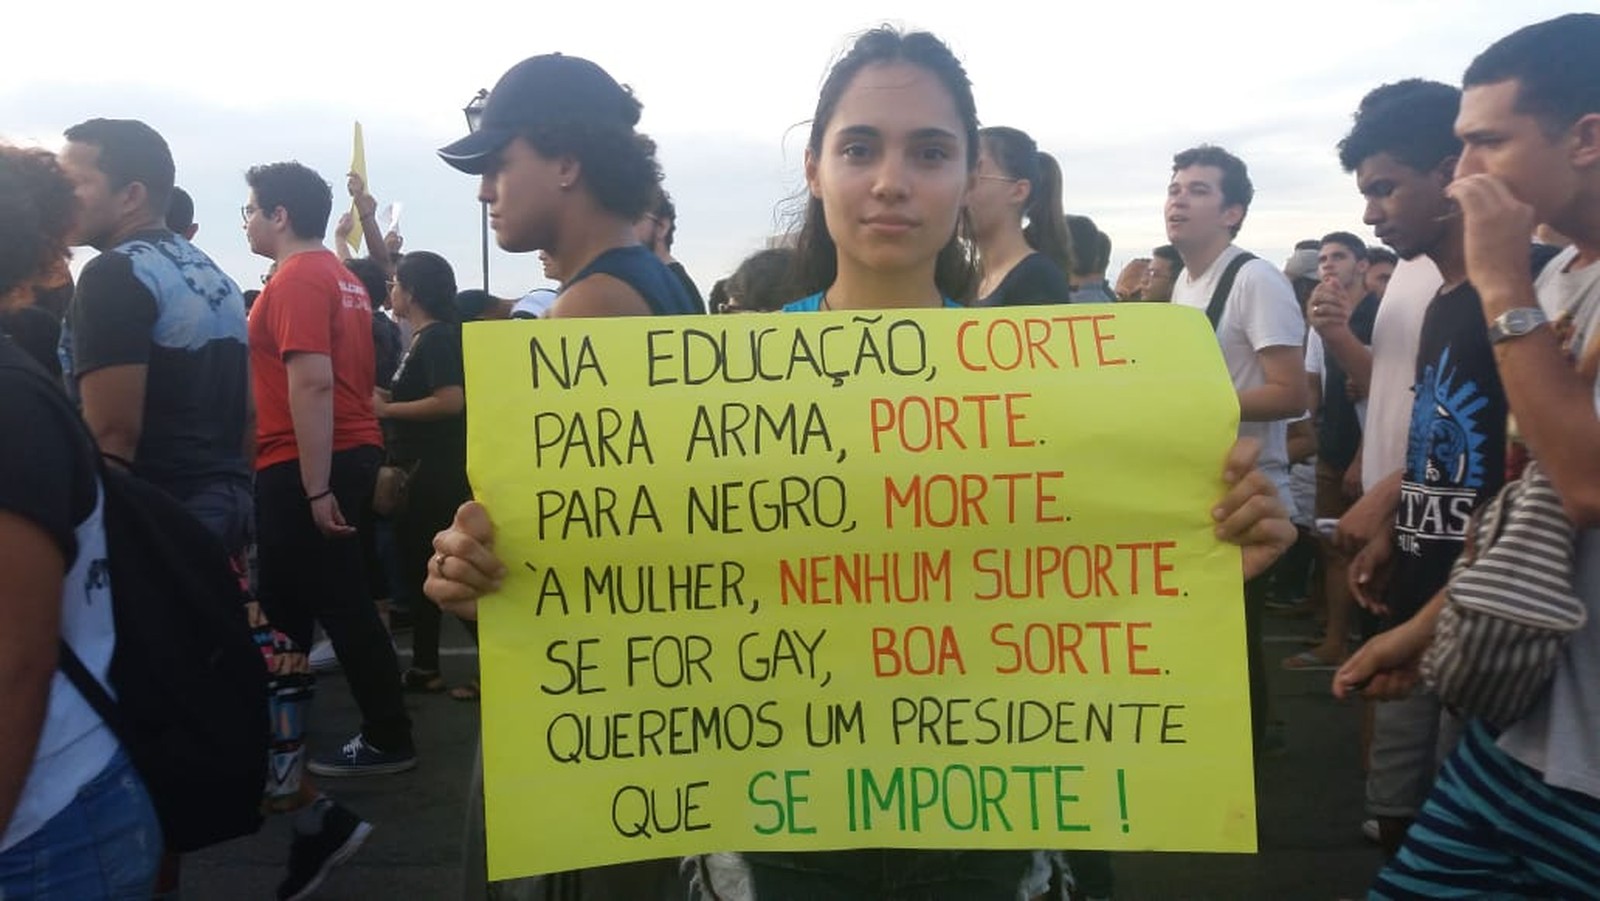 NA EDUCAÇÃO, CORTE.
PARA ARMA, PORTE.
PARA NEGRO, MORTE.
`A MULHER, NENHUM SUPORTE.
SE FOR GAY, BOA SORTE.
QUEREMOS UM PRESIDENTE
QUE SE IMPORTE !
TAS